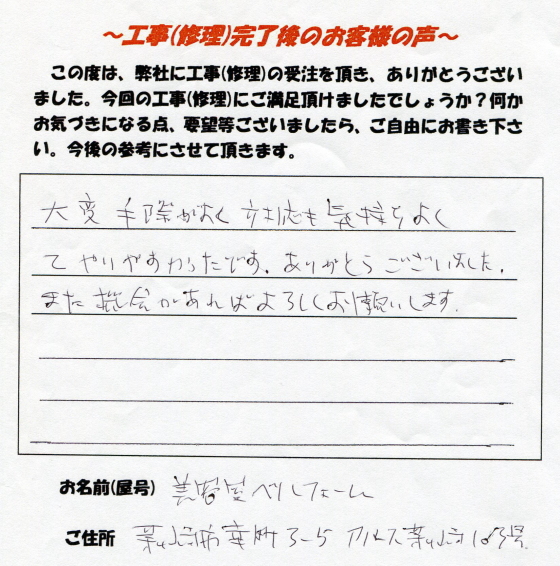 ～工事(修理)完了後のお客様の声～
この度は、弊社に工事(修理)の受注を頂き、ありがとうござい
ました。今回の工事(修理)にご満足頂けましたでしょうか？何か
お気づきになる点、要望等ございましたら、ご自由にお書き下さ
い。今後の参考にさせて頂きます。
大変手際がよく対応も気持ちよく
てやりやすかったです。ありがとうございました。
また機会があればよろしくお願いします。
お名前(屋号) 美容室
ご住所 幸町3-5